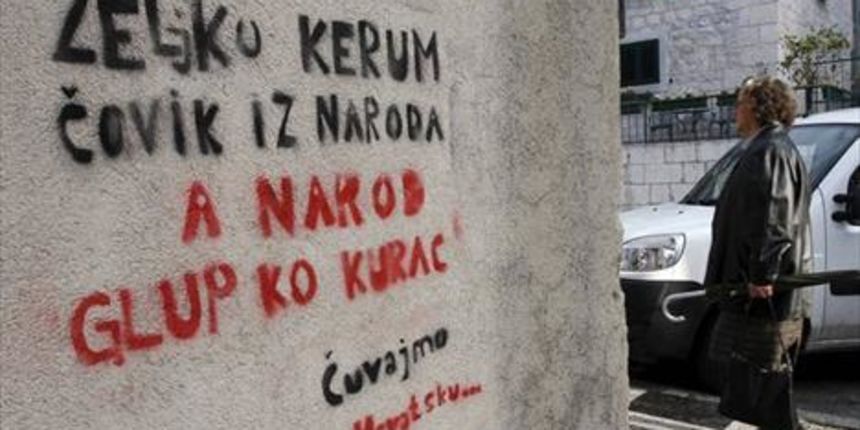 ŽELJKO KERUM
ČOVIK IZ NARODA
A NAROD
GLUP KO KURAC
Čuvajmo
Hrvatsku...